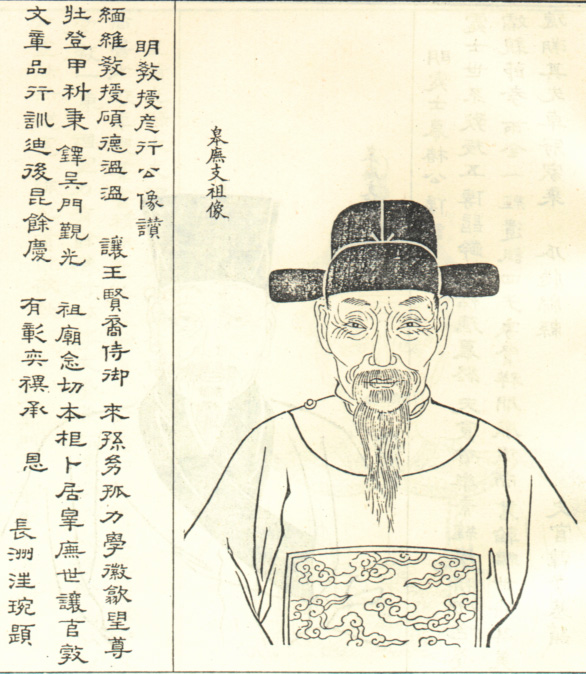 皋廡支祖像
明敎授彥行公像讚
緬維敎授碩德溫溫 讓王賢裔侍御 來孫孤力學徽望尊
壯登甲科秉 鐸吳門觀光 祖廟念切本根卜居皋廡世讓敦
文章品行訓迪後昆餘慶 有彰奕禩承 恩
長洲汪琬題